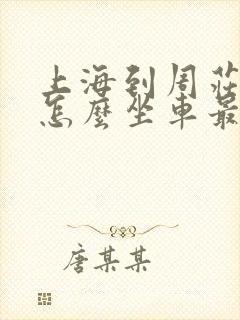 上海到周莊
怎麼坐車最
唐某某